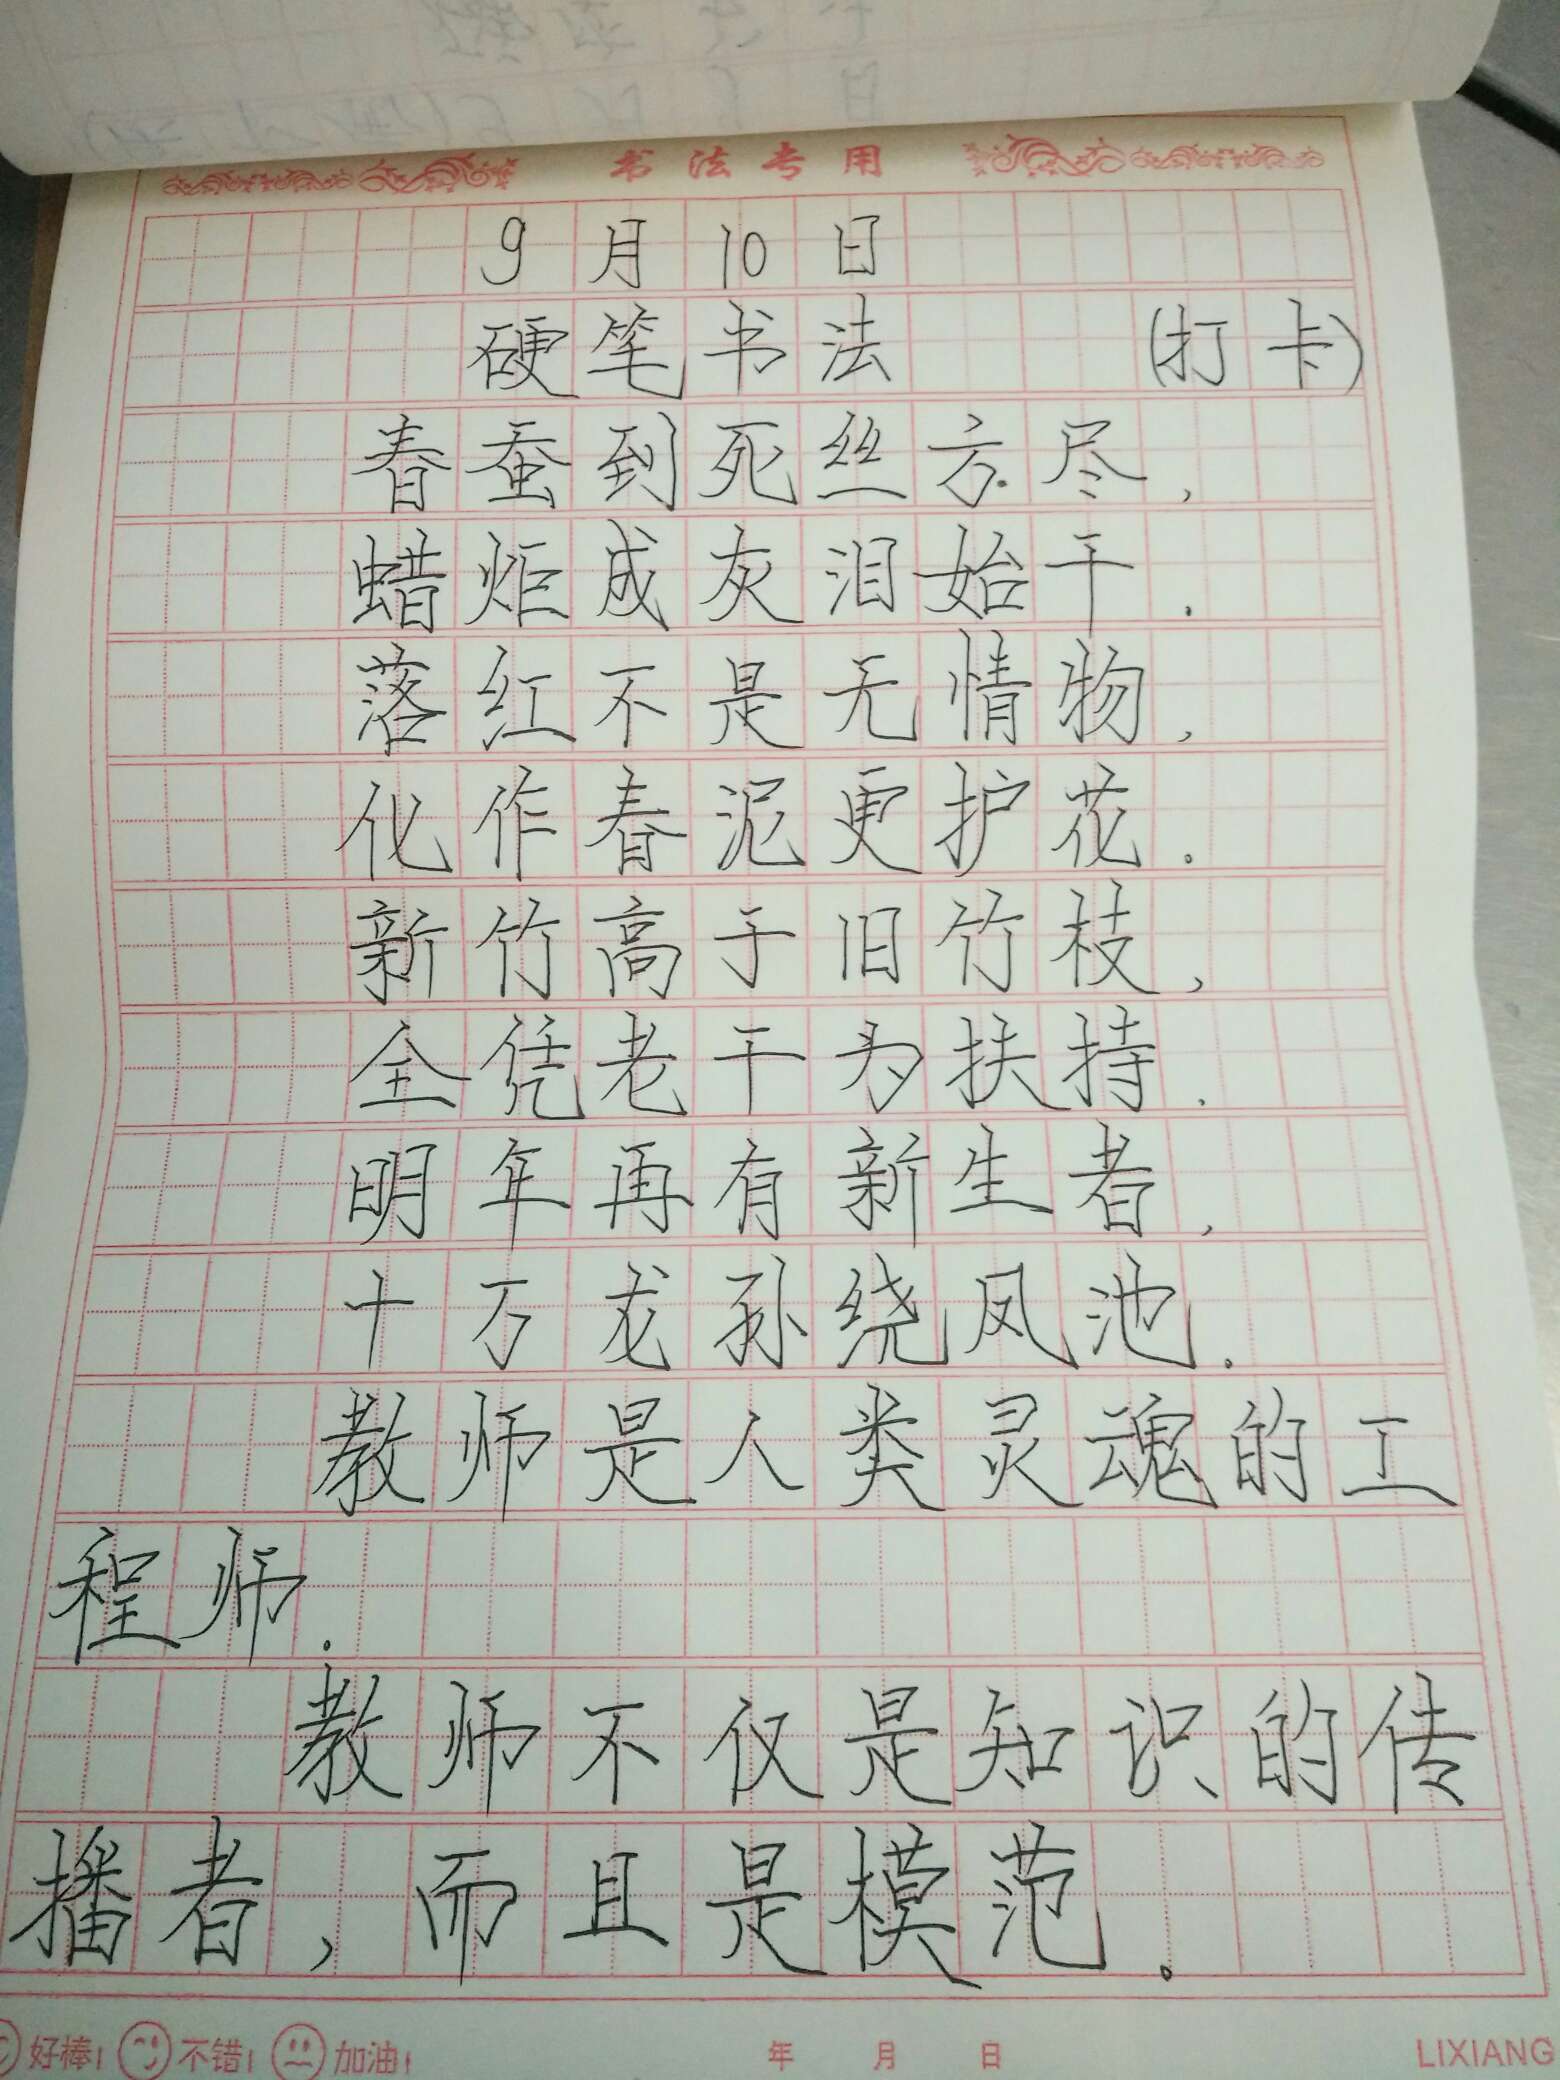 书法专用
9月10日
硬笔书法 (打卡)
春蚕到死丝方尽,
蜡炬成灰泪始干.
落红不是无情物,
化作春泥更护花.
新竹高于旧竹枝,
全凭老干为扶持.
明年再有新生者,
十万龙孙绕凤池.
教师是人类灵魂的工
程师.
教师不仅是知识的传
播者,而且是模范.
好棒! 不错! 加油! 年 月 日 LIXIANG